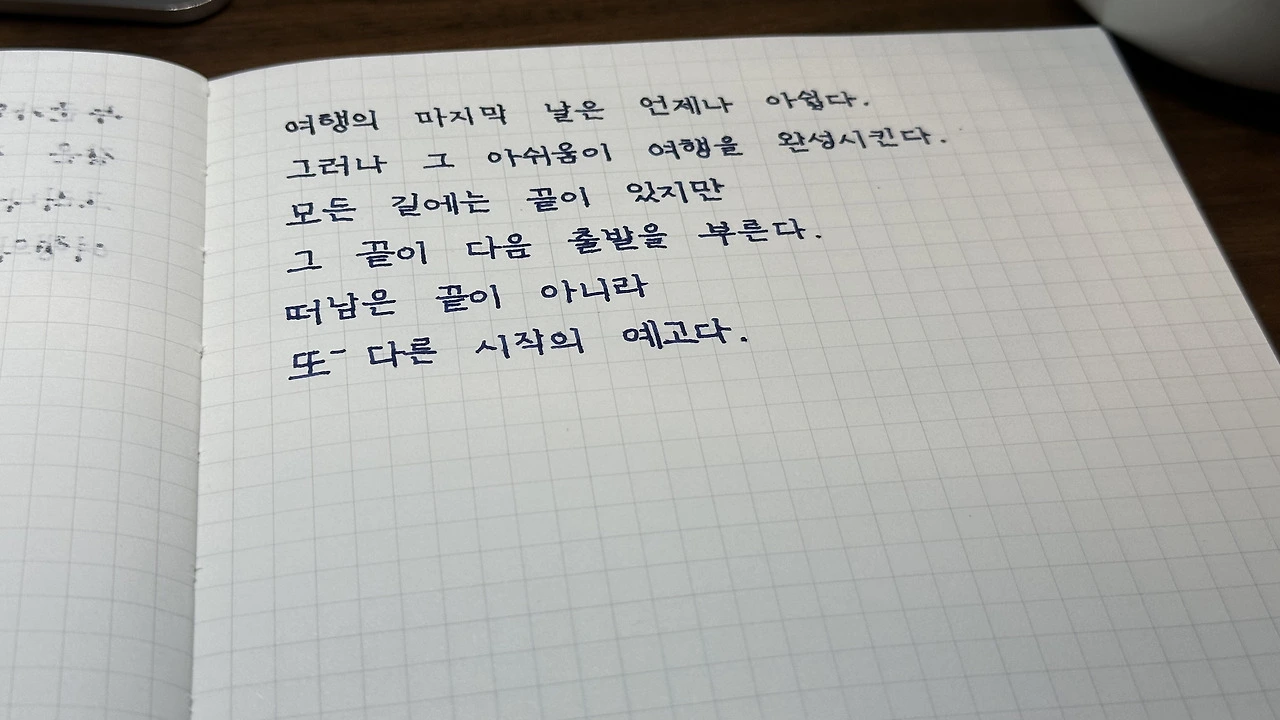 여행의 마지막 날은 언제나 아쉽다.
그러나 그 아쉬움이 여행을 완성시킨다.
모든 길에는 끝이 있지만
그 끝이 다음 출발을 부른다.
떠남은 끝이 아니라
또 다른 시작의 예고다.